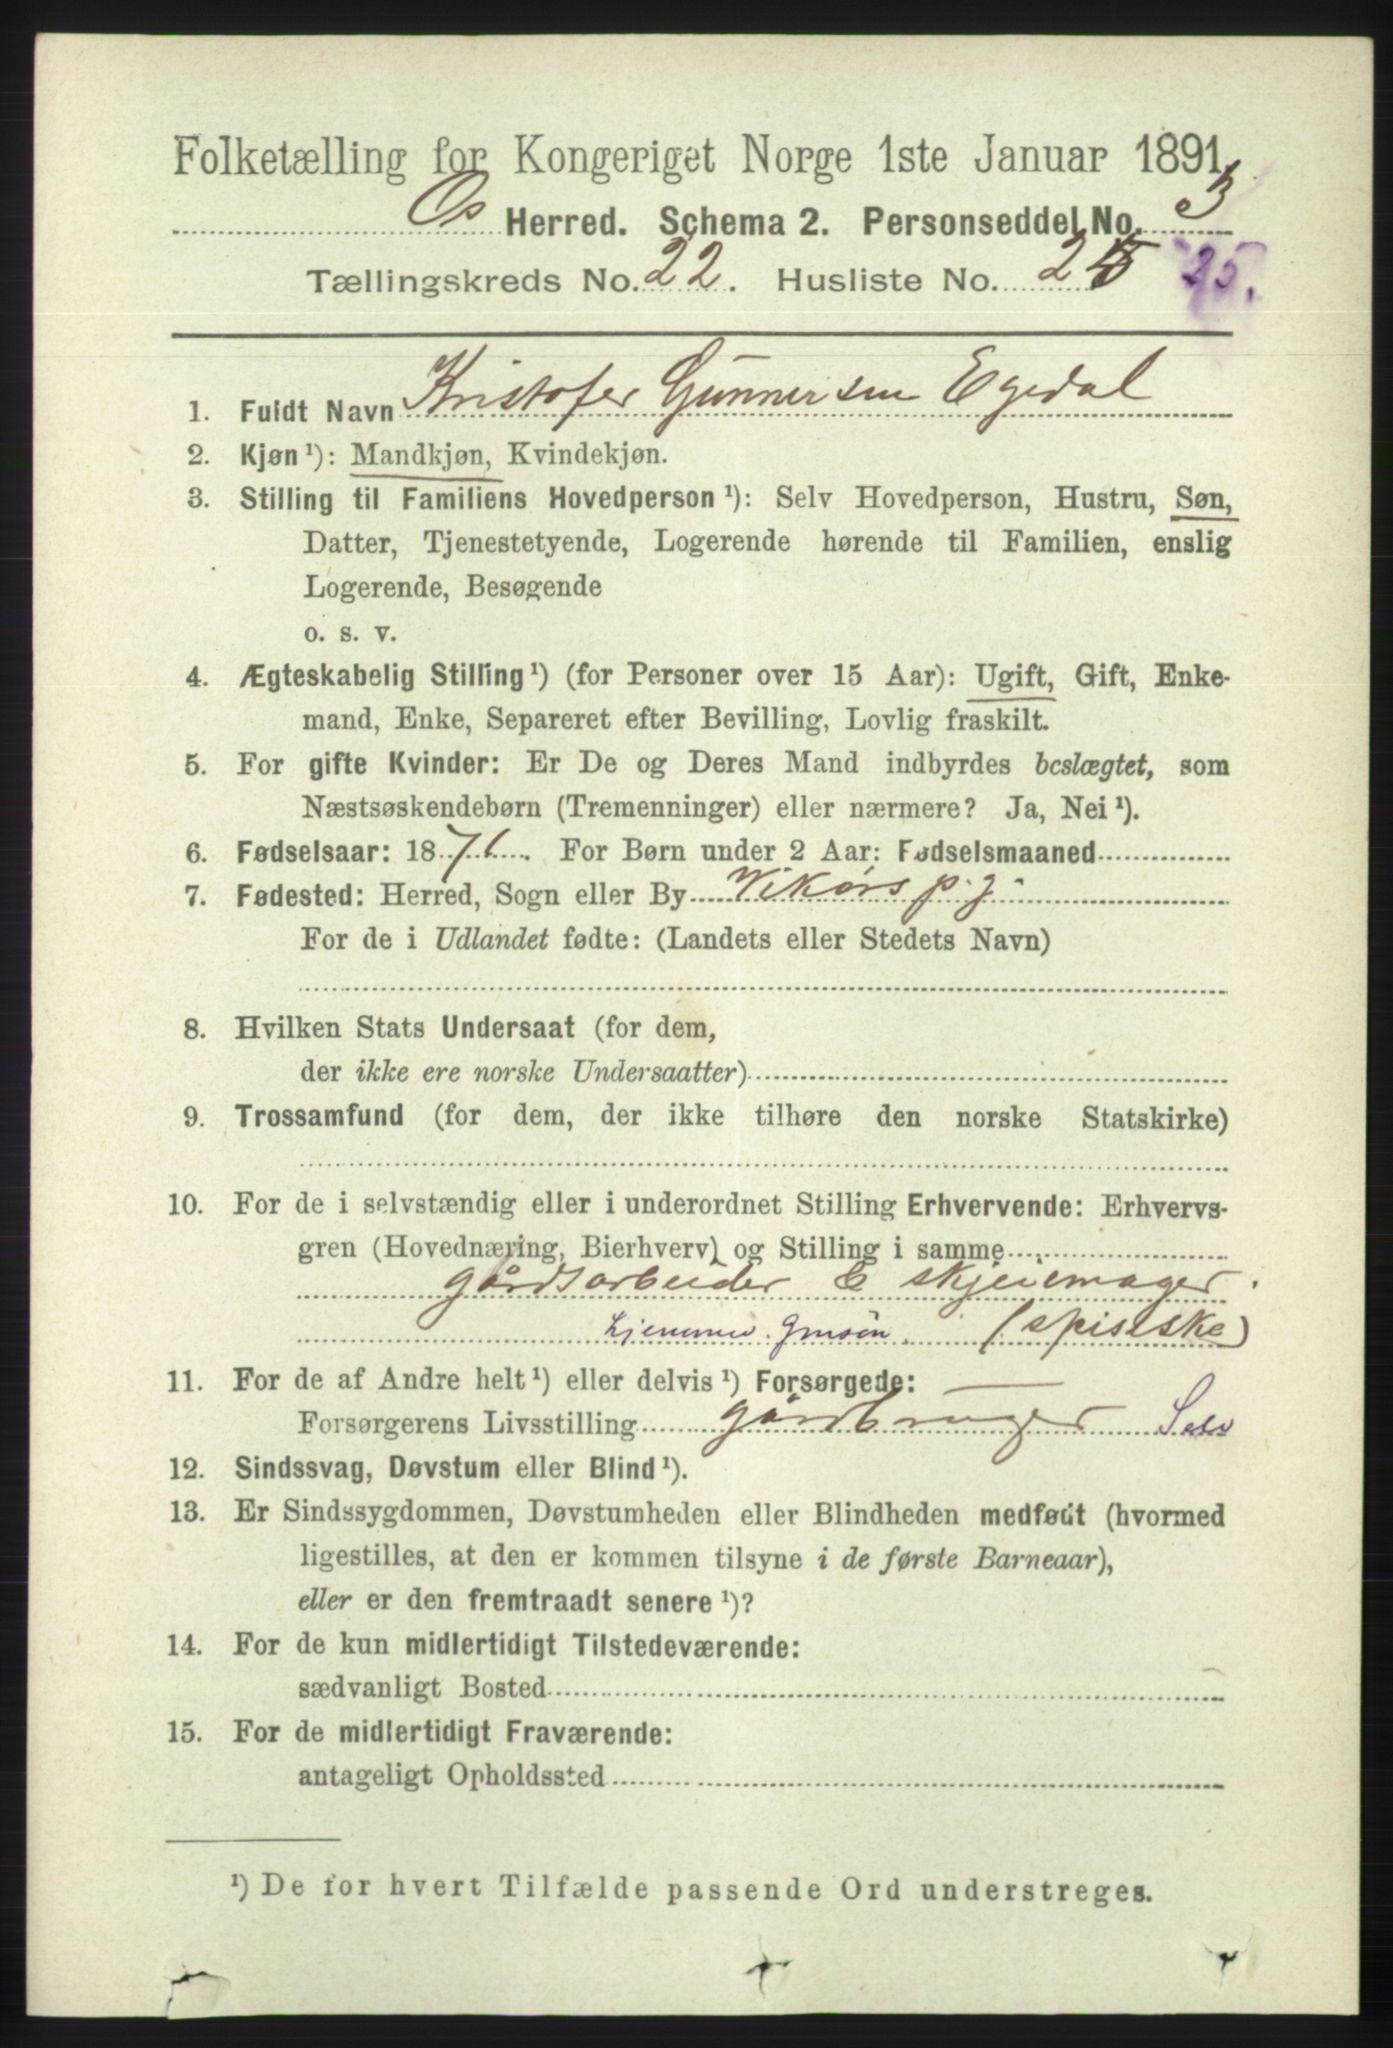 Folketælling for Kongeriget Norge 1ste Januar 1891.
Os Herred. Schema 2. Personseddel No. 3
Tællingskreds No. 22. Husliste No. 25 25.
1. Fuldt Navn Kristofer Gunnersen Egedal
2. Kjøn ¹): Mandkjøn, Kvindekjøn.
3. Stilling til Familiens Hovedperson ¹): Selv Hovedperson, Hustru, Søn,
Datter, Tjenestetyende, Logerende hørende til Familien, enslig
Logerende, Besøgende
o. s. v.
4. Ægteskabelig Stilling ¹) (for Personer over 15 Aar): Ugift, Gift, Enke-
mand, Enke, Separeret efter Bevilling, Lovlig fraskilt.
5. For gifte Kvinder: Er De og Deres Mand indbyrdes beslægtet, som
Næstsøskendebørn (Tremenninger) eller nærmere? Ja, Nei ¹).
6. Fødselsaar: 1871. For Børn under 2 Aar: Fødselsmaaned
7. Fødested: Herred, Sogn eller By Vikørs p.g.
For de i Udlandet fødte: (Landets eller Stedets Navn)
8. Hvilken Stats Undersaat (for dem,
der ikke ere norske Undersaatter)
9. Trossamfund (for dem, der ikke tilhøre den norske Statskirke)
10. For de i selvstændig eller i underordnet Stilling Erhvervende: Erhvervs-
gren (Hovednæring, Bierhverv) og Stilling i samme
gårdsarbeider & skjeiemager.
hjemmev. Gmsøn. (spiseske)
11. For de af Andre helt ¹) eller delvis ¹) Forsørgede:
Forsørgerens Livsstilling gårdbruger Selv
12. Sindssvag, Døvstum eller Blind ¹).
13. Er Sindssygdommen, Døvstumheden eller Blindheden medfødt (hvormed
ligestilles, at den er kommen tilsyne i de første Barneaar),
eller er den fremtraadt senere ¹)?
14. For de kun midlertidigt Tilstedeværende:
sædvanligt Bosted
15. For de midlertidigt Fraværende:
antageligt Opholdssted
¹) De for hvert Tilfælde passende Ord understreges.